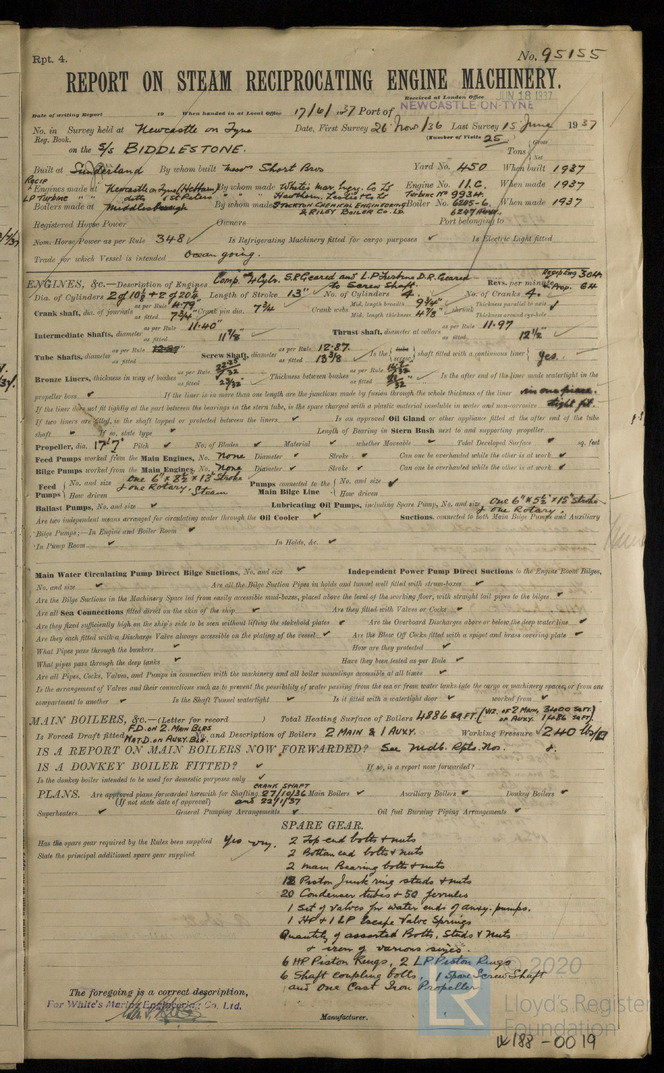 Rpt. 4.
No. 95155
REPORT ON STEAM RECIPROCATING ENGINE MACHINERY.
Received at London Office JUN 18 1937
Date of writing Report 19 When handed in at Local Office 17/6/37 Port of NEWCASTLE-ON-TYNE
No. in Survey held at Newcastle on Tyne Date, First Survey 26 Nov/36 Last Survey 15 June 1937
Reg. Book. (Number of Visits 25)
on the S/S BIDDLESTONE. Tons Gross Net
Built at Sunderland By whom built Messrs Short Bros Yard No. 450 When built 1937
RECIP Engines made at Newcastle on Tyne (Hebburn) By whom made White's Mar. Engrg. Co Ld Engine No. 11.C. When made 1937
LP Turbine " " ditto St Peters " " Hawthorn, Leslie & Co Ld Turbine No 9934.
Boilers made at Middlesbrough By whom made STOCKTON CHEMICAL ENGINEERING & RILEY BOILER CO. LD. Boiler No. 6245-6. 6247 AUXY. When made 1937
Registered Horse Power Owners Port belonging to
Nom. Horse Power as per Rule 348 Is Refrigerating Machinery fitted for cargo purposes Is Electric Light fitted
Trade for which Vessel is intended Ocean going.
ENGINES, &c.—Description of Engines Comp. 4 Cyls. S.R. Geared and L.P. Turbine D.R. Geared to Screw Shaft. Revs. per minute Recip Eng 304 Prop. 64
Dia. of Cylinders 2 of 10½ + 2 of 20¼ Length of Stroke 13" No. of Cylinders 4. No. of Cranks 4.
Crank shaft, dia. of journals as per Rule 4.79" as fitted 7¾" Crank pin dia. 7¾ Crank webs Mid. length breadth 9¼" Mid. length thickness 4⅞" shrunk Thickness parallel to axis Thickness around eyehole
Intermediate Shafts, diameter as per Rule 11.40" as fitted 11⅞" Thrust shaft, diameter at collars as per Rule 11.97 as fitted 12½"
Tube Shafts, diameter as per Rule as fitted Screw Shaft, diameter as per Rule 12.87 as fitted 13⅜ Is the screw shaft fitted with a continuous liner yes.
Bronze Liners, thickness in way of bushes as per Rule as fitted Thickness between bushes as per Rule as fitted Is the after end of the liner made watertight in the
propeller boss If the liner is in more than one length are the junctions made by fusion through the whole thickness of the liner in one piece.
If the liner does not fit tightly at the part between the bearings in the stern tube, is the space charged with a plastic material insoluble in water and non-corrosive tight fit.
If two liners are fitted, is the shaft lapped or protected between the liners Is an approved Oil Gland or other appliance fitted at the after end of the tube
shaft If so, state type Length of Bearing in Stern Bush next to and supporting propeller
Propeller, dia. Pitch No. of Blades Material whether Moveable Total Developed Surface sq. feet
Feed Pumps worked from the Main Engines, No. None Diameter Stroke Can one be overhauled while the other is at work
Bilge Pumps worked from the Main Engines, No. None Diameter Stroke Can one be overhauled while the other is at work
Feed Pumps No. and size One 6" x 8½" x 13" Stroke & one Rotary. How driven Steam Pumps connected to the Main Bilge Line No. and size How driven
Ballast Pumps, No. and size Lubricating Oil Pumps, including Spare Pump, No. and size One 6" x 5½" x 15" Stroke & one Rotary.
Are two independent means arranged for circulating water through the Oil Cooler Suctions, connected to both Main Bilge Pumps and Auxiliary
Bilge Pumps;—In Engine and Boiler Room
In Pump Room In Holds, &c.
Main Water Circulating Pump Direct Bilge Suctions, No. and size Independent Power Pump Direct Suctions to the Engine Room Bilges,
No. and size Are all the Bilge Suction Pipes in holds and tunnel well fitted with strum-boxes
Are the Bilge Suctions in the Machinery Space led from easily accessible mud-boxes, placed above the level of the working floor, with straight tail pipes to the bilges
Are all Sea Connections fitted direct on the skin of the ship Are they fitted with Valves or Cocks
Are they fixed sufficiently high on the ship's side to be seen without lifting the stokehold plates Are the Overboard Discharges above or below the deep water line
Are they each fitted with a Discharge Valve always accessible on the plating of the vessel Are the Blow Off Cocks fitted with a spigot and brass covering plate
What Pipes pass through the bunkers How are they protected
What pipes pass through the deep tanks Have they been tested as per Rule
Are all Pipes, Cocks, Valves, and Pumps in connection with the machinery and all boiler mountings accessible at all times
Is the arrangement of Valves and their connections such as to prevent the possibility of water passing from the sea or from water tanks into the cargo or machinery spaces, or from one
compartment to another Is the Shaft Tunnel watertight Is it fitted with a watertight door worked from
MAIN BOILERS, &c.—(Letter for record ) Total Heating Surface of Boilers 4886 SQ.FT. (VIZ. OF 2 MAIN, 3400 SQ.FT. OF AUXY. 1486 SQ.FT.)
Is Forced Draft fitted F.D. on 2. MAIN BLRS NAT. D. on AUXY. BLR. No. and Description of Boilers 2 MAIN & 1 AUXY. Working Pressure 240 lbs/□
IS A REPORT ON MAIN BOILERS NOW FORWARDED? See Mdb. Rpts. Nos.
IS A DONKEY BOILER FITTED? If so, is a report now forwarded?
Is the donkey boiler intended to be used for domestic purposes only
PLANS. Are approved plans forwarded herewith for Shafting CRANK SHAFT 27/10/36 and 22/1/37 Main Boilers Auxiliary Boilers Donkey Boilers
(If not state date of approval)
Superheaters General Pumping Arrangements Oil fuel Burning Piping Arrangements
SPARE GEAR.
Has the spare gear required by the Rules been supplied Yes
State the principal additional spare gear supplied
2 Top end bolts & nuts
2 Bottom end bolts & nuts
2 main Bearing bolts & nuts
12 Piston Junk ring studs & nuts
20 Condenser tubes & 50 ferrules
1 Set of Valves for water ends of auxy. pumps.
1 HP & 1 LP Escape Valve Springs
Quantity of assorted Bolts, Studs & Nuts
& iron of various sizes.
6 HP Piston Rings, 2 LP Piston Rings
6 Shaft coupling bolts, 1 Spare Screw Shaft
and One Cast Iron Propeller
The foregoing is a correct description,
For White's Marine Engineering Co. Ltd.
Manufacturer.
© 2020
LR
Lloyd's Register
Foundation
W188-0019